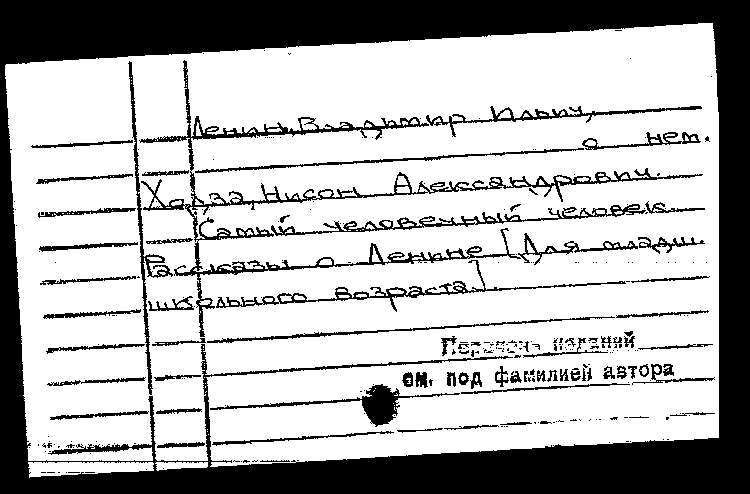 Ленин, Владимир Ильич,
о нем.
Ходза, Нисон Александрович.
Самый человечный человек.
Рассказы о Ленине [Для младш.
школьного возраста].
Перечень изданий
см. под фамилией автора